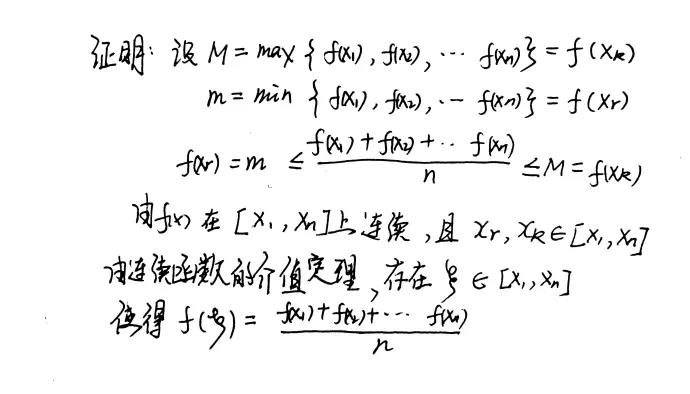 证明：设 M = max { f(x₁), f(x₂), … f(xₙ)} = f(x_k)
m = min { f(x₁), f(x₂), … f(xₙ)} = f(x_r)
f(x_r) = m ≤ (f(x₁) + f(x₂) + … f(xₙ)) / n ≤ M = f(x_k)
由 f(x) 在 [x₁, xₙ] 上连续，且 x_r, x_k ∈ [x₁, xₙ]
由连续函数的介值定理，存在 ξ ∈ [x₁, xₙ]
使得 f(ξ) = (f(x₁) + f(x₂) + … f(xₙ)) / n